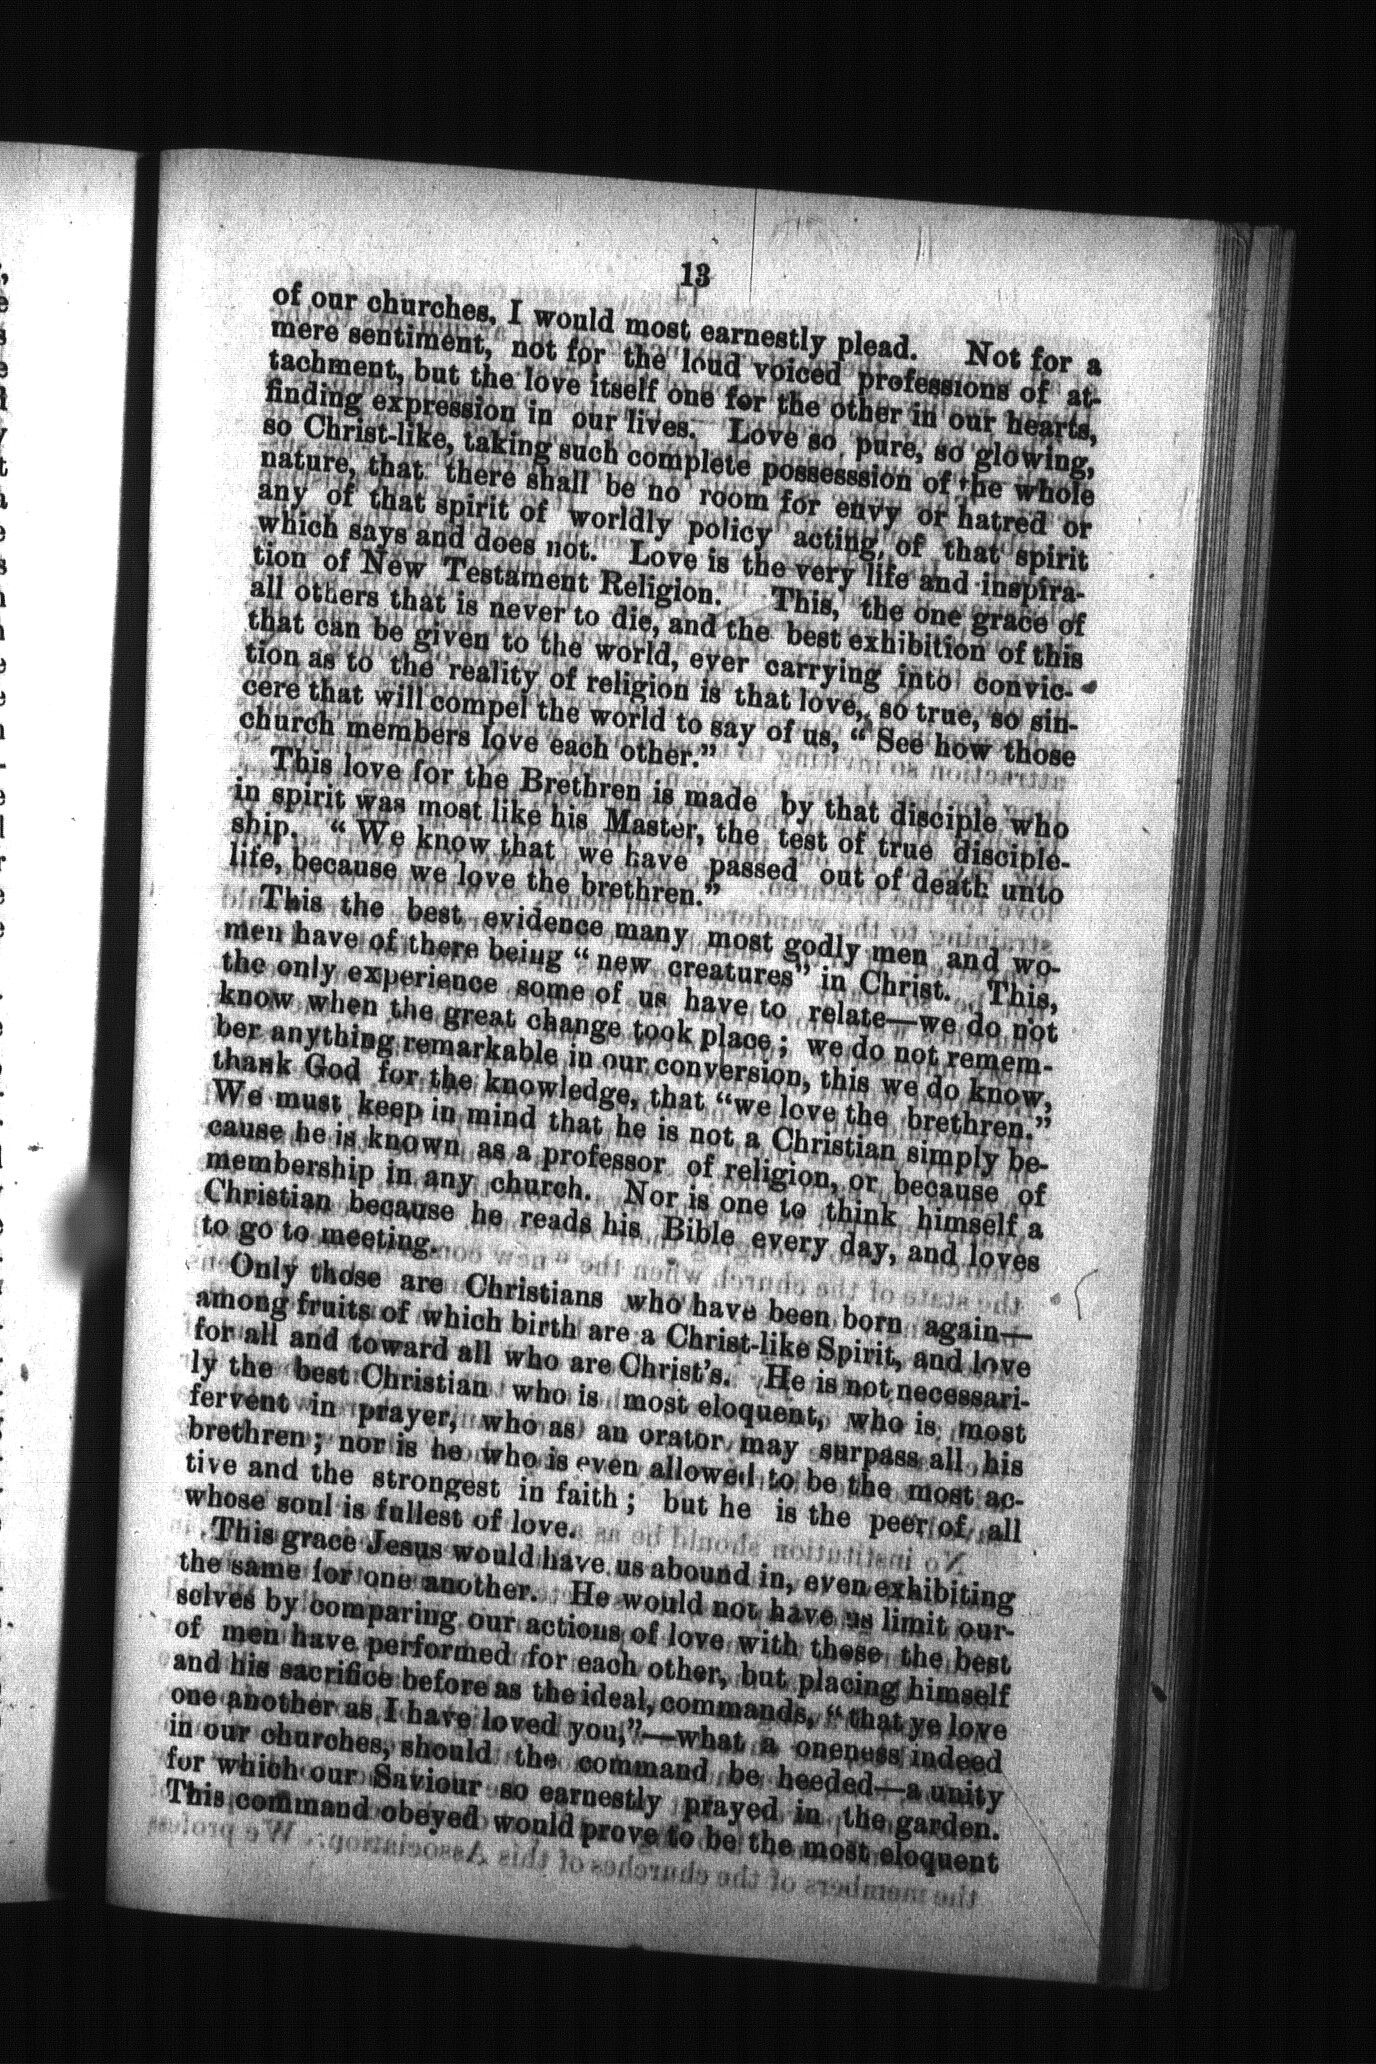 13
of our churches, I would most earnestly plead. Not for a
mere sentiment, not for the loud voiced professions of at-
tachment, but the love itself one for the other in our hearts,
finding expression in our lives. Love so pure, so glowing,
so Christ-like, taking such complete possesssion of the whole
nature, that there shall be no room for envy or hatred or
any of that spirit of worldly policy acting, of that spirit
which says and does not. Love is the very life and inspira-
tion of New Testament Religion. This, the one grace of
all others that is never to die, and the best exhibition of this
that can be given to the world, ever carrying into convic-
tion as to the reality of religion is that love, so true, so sin-
cere that will compel the world to say of us, “ See how those
church members love each other.”
This love for the Brethren is made by that disciple who
in spirit was most like his Master, the test of true disciple-
ship. “ We know that we have passed out of death unto
life, because we love the brethren.”
This the best evidence many most godly men and wo-
men have of there being “ new creatures” in Christ. This,
the only experience some of us have to relate—we do not
know when the great change took place ; we do not remem-
ber anything remarkable in our conversion, this we do know,
thank God for the knowledge, that “we love the brethren.”
We must keep in mind that he is not a Christian simply be-
cause he is known as a professor of religion, or because of
membership in any church. Nor is one to think himself a
Christian because he reads his Bible every day, and loves
to go to meeting.
Only those are Christians who have been born again—
among fruits of which birth are a Christ-like Spirit, and love
for all and toward all who are Christ’s. He is not necessari-
ly the best Christian who is most eloquent, who is most
fervent in prayer, who as an orator may surpass all his
brethren ; nor is he who is even allowed to be the most ac-
tive and the strongest in faith ; but he is the peer of all
whose soul is fullest of love.
This grace Jesus would have us abound in, even exhibiting
the same for one another. He would not have us limit our-
selves by comparing our actions of love with those the best
of men have performed for each other, but placing himself
and his sacrifice before as the ideal, commands, “that ye love
one another as I have loved you,”—what a oneness indeed
in our churches, should the command be heeded—a unity
for which our Saviour so earnestly prayed in the garden.
This command obeyed would prove to be the most eloquent